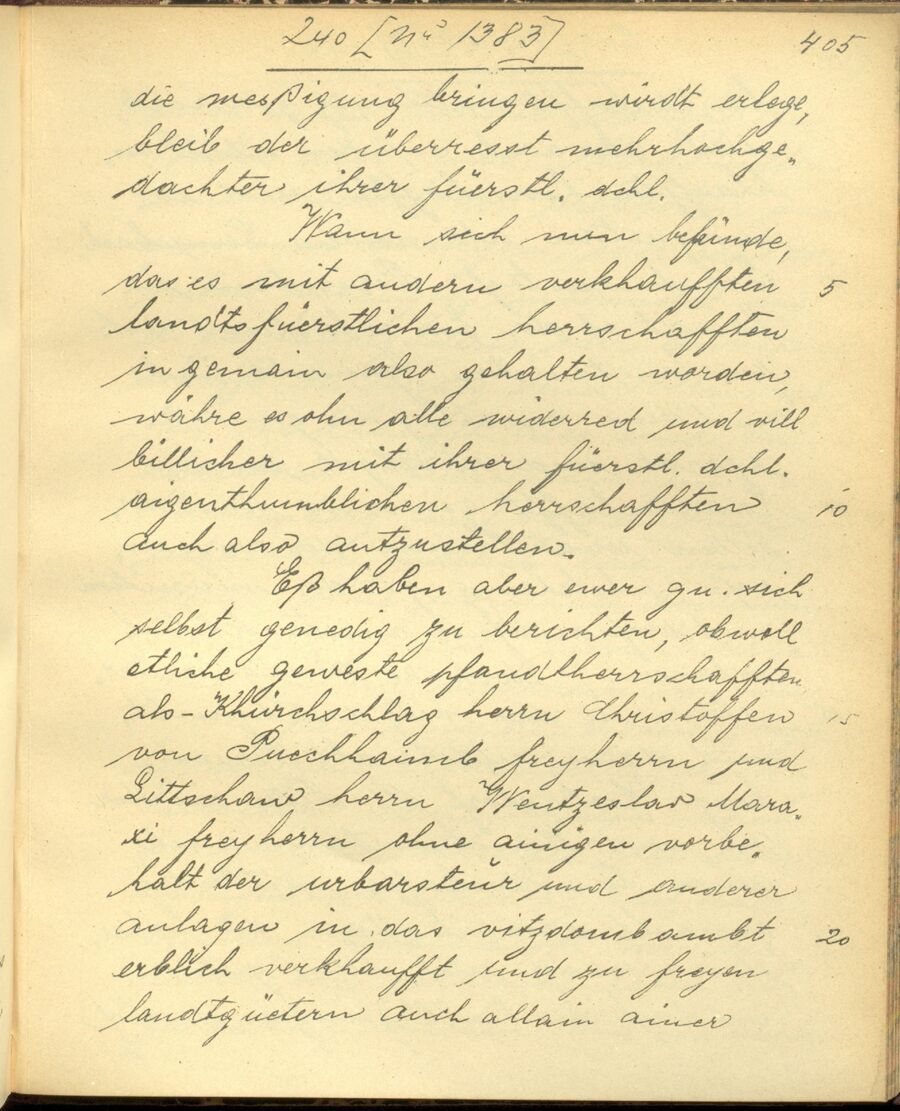 240 [Nr 1383] 405
die mesßigung bringen wirdt erlege,
bleib der überresst mehrhochge„
dachter ihrer füerstl. dchl.
Wann sich nun befünde,
das es mit andern verkhaufften 5
landtsfüerstlichen herrschafften
in gemain also gehalten worden,
währe es ohn alle widerred und vill
billicher mit ihrer füerstl. dchl.
aigenthumblichen herrschafften 10
auch also antzustellen.
Eß haben aber ewer gn. sich
selbst genedig zu berichten, obwoll
etliche geweste pfandtherrschafften
als - Khürchschlag herrn Christoffen 15
von Puechhaimb freyherrn und
Littschaw herrn Wentzeslao Mara„
xi freyherrn ohne ainigen vorbe„
halt der urbarsteür und anderer
anlagen in das vitzdombambt 20
erblich verkhaufft und zu freyen
landtgüetern auch allain ainer